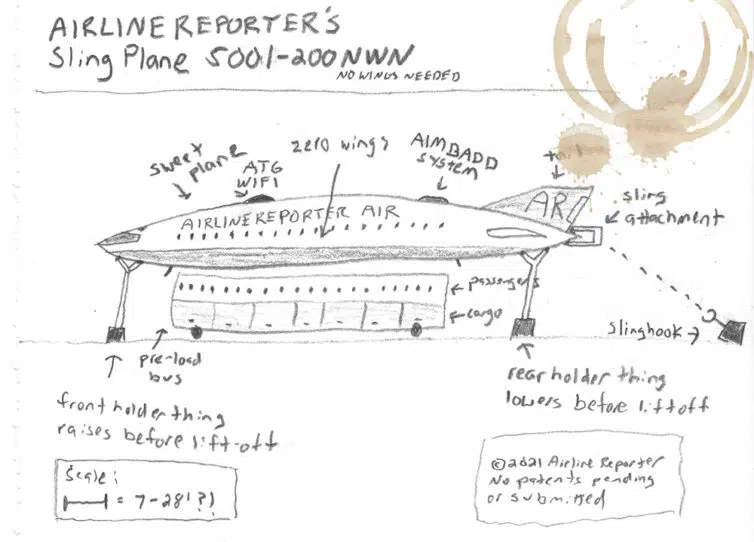 AIRLINEREPORTER'S
Sling Plane 5001-200NWN
NO WINGS NEEDED
sweet plane
ATG
WIFI
zero wings
AIMBADD
SYSTEM
tail
sling
attachment
AR
AIRLINEREPORTER AIR
passengers
cargo
slinghook
pre-load
bus
front holder thing
raises before lift-off
rear holder thing
lowers before liftoff
Scale:
= 7-28'?)
©2021 Airline Reporter
No patents pending
or submitted